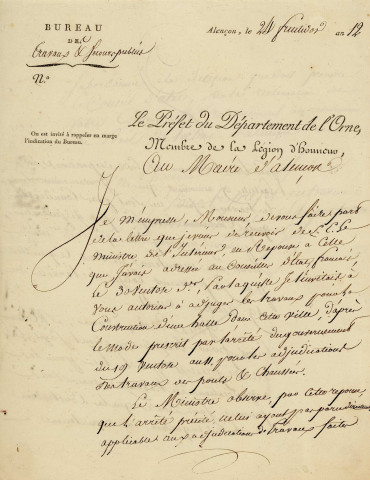 BUREAU
DES
Travaux & Secours publics
N.o
Alençon, le 24 fructidor an 12
On est invité à rappeler en marge
l'indication du Bureau.
Le Préfet du Département de l'Orne,
Membre de la Légion d'honneur,
Au Maire d'alençon
Je m'empresse, Monsieur, de vous faire part
de la lettre que je viens de recevoir de S. E. Le
Ministre de l'Intérieur, en Réponse à Celle
que j'avais adressée au Conseiller d'état français
le 30 ventose dr. par laquelle je l'invitais à
vous autoriser à adjuger les travaux pour la
Construction d'une halle dans cette ville, d'après
le mode prescrit par l'arrêté du gouvernement
du 19 ventose an 11, pour les adjudications
des travaux des ponts & Chaussées.
Le Ministre observe, par cette réponse
que l'arrêté précité, ne lui ayant pas paru
applicable aux adjudications de travaux faites